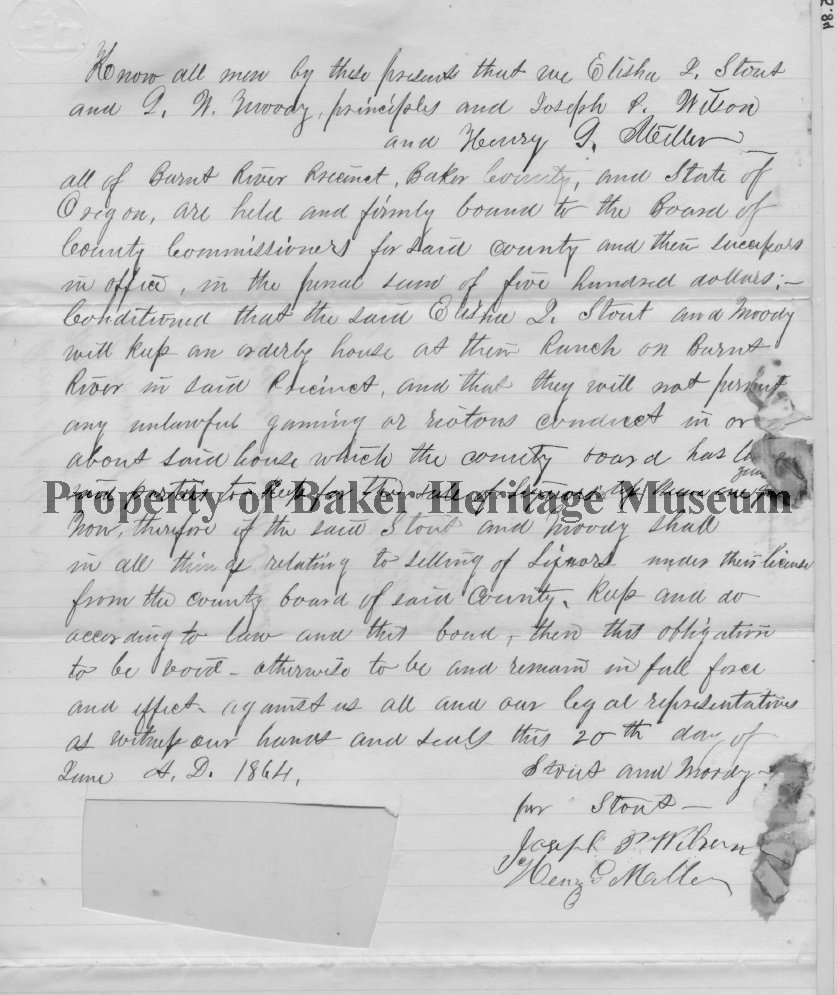 Know all men by these presents that we Elisha I. Stout
and I. W. Moody, principles and Joseph P. Wilson
and Henry G. Miller
all of Burnt River Precinct, Baker County, and State of
Oregon, are held and firmly bound to the Board of
County Commissioners for said county and their successors
in office, in the penal sum of five hundred dollars;—
Conditioned that the said Elisha I. Stout and Moody
will keep an orderly house at their Ranch on Burnt
River in said Precinct, and that they will not permit
any unlawful gaming or riotous conduct in or
about said house which the county board has
said parties to keep for the sale of Liquors
Property of Baker Heritage Museum
Now, therefore if the said Stout and Moody shall
in all things relating to selling of Liquors under their license
from the county board of said County, keep and do
according to law and this bond, then this obligation
to be void - otherwise to be and remain in full force
and effect - against us all and our legal representatives
as witness our hands and seals this 20th day of
June A. D. 1864.
Stout and Moody
per Stout —
Joseph P Wilson
Henry G Miller